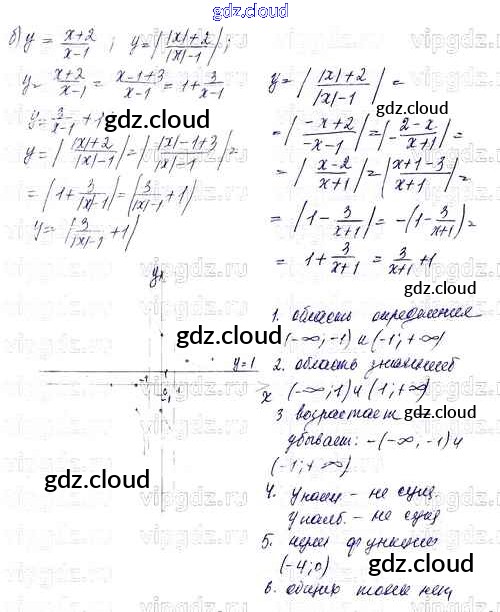 gdz.cloud
б) y = (x+2)/(x-1) ; y = | (|x|+2)/(|x|-1) | ;
y = (x+2)/(x-1) = (x-1+3)/(x-1) = 1 + 3/(x-1)
y = 3/(x-1) + 1
gdz.cloud
y = | (|x|+2)/(|x|-1) | = | (|x|-1+3)/(|x|-1) | =
= | 1 + 3/(|x|-1) | = | 3/(|x|-1) + 1 |
y = | 3/(|x|-1) + 1 |
y = | (|x|+2)/(|x|-1) | =
= | (-x+2)/(-x-1) | = | - (2-x)/(x+1) | =
gdz.cloud
= | (x-2)/(x+1) | = | (x+1-3)/(x+1) | =
= | 1 - 3/(x+1) | = -(1 - 3/(x+1)) =
= 1 + 3/(x+1) = 3/(x+1) + 1
gdz.cloud
y
gdz.cloud
y=1
-1
1
0
1
x
gdz.cloud
1. область определения
(-∞; -1) и (-1; +∞)
2. область значений
(-∞; 1) и (1; +∞)
3 возрастает
gdz.cloud
убывает: -(-∞; -1) и
(-1; +∞)
4. y наим - не сущ
y наиб. - не сущ
5. нули функции
(-4; 0)
gdz.cloud
6. общих точек нет